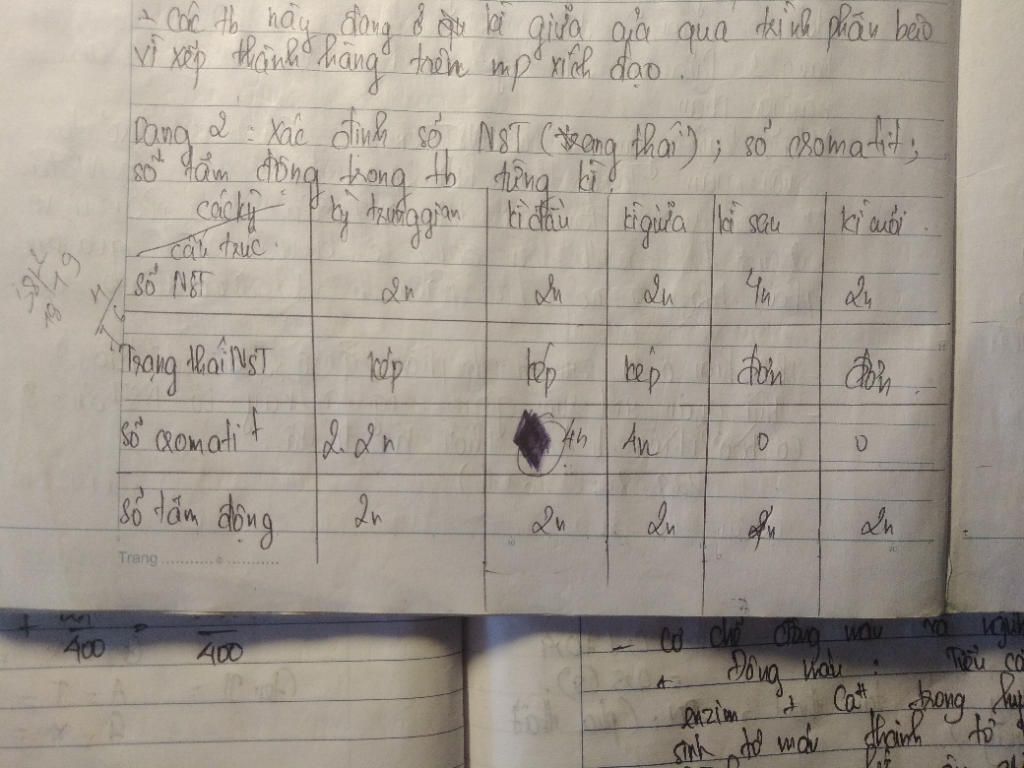 + các tb này đang ở kì giữa của quá trình phân bào
vì xếp thành hàng trên mp xích đạo.
Dạng 2: xác định số NST (trạng thái); số cromatit;
số tâm động trong tb từng kì.
các kỳ kỳ trung gian kì đầu kì giữa kì sau kì cuối
cấu trúc
số NST 2n 2n 2n 4n 2n
Trạng thái NST kép kép kép đơn đơn
số cromatit 2.2n 4n 4n 0 0
số tâm động 2n 2n 2n 2n
Trang
400 400
- cơ chế đông máu và
+ Đông máu: Tiểu
enzim + Ca trong
sinh tơ máu thành tơ